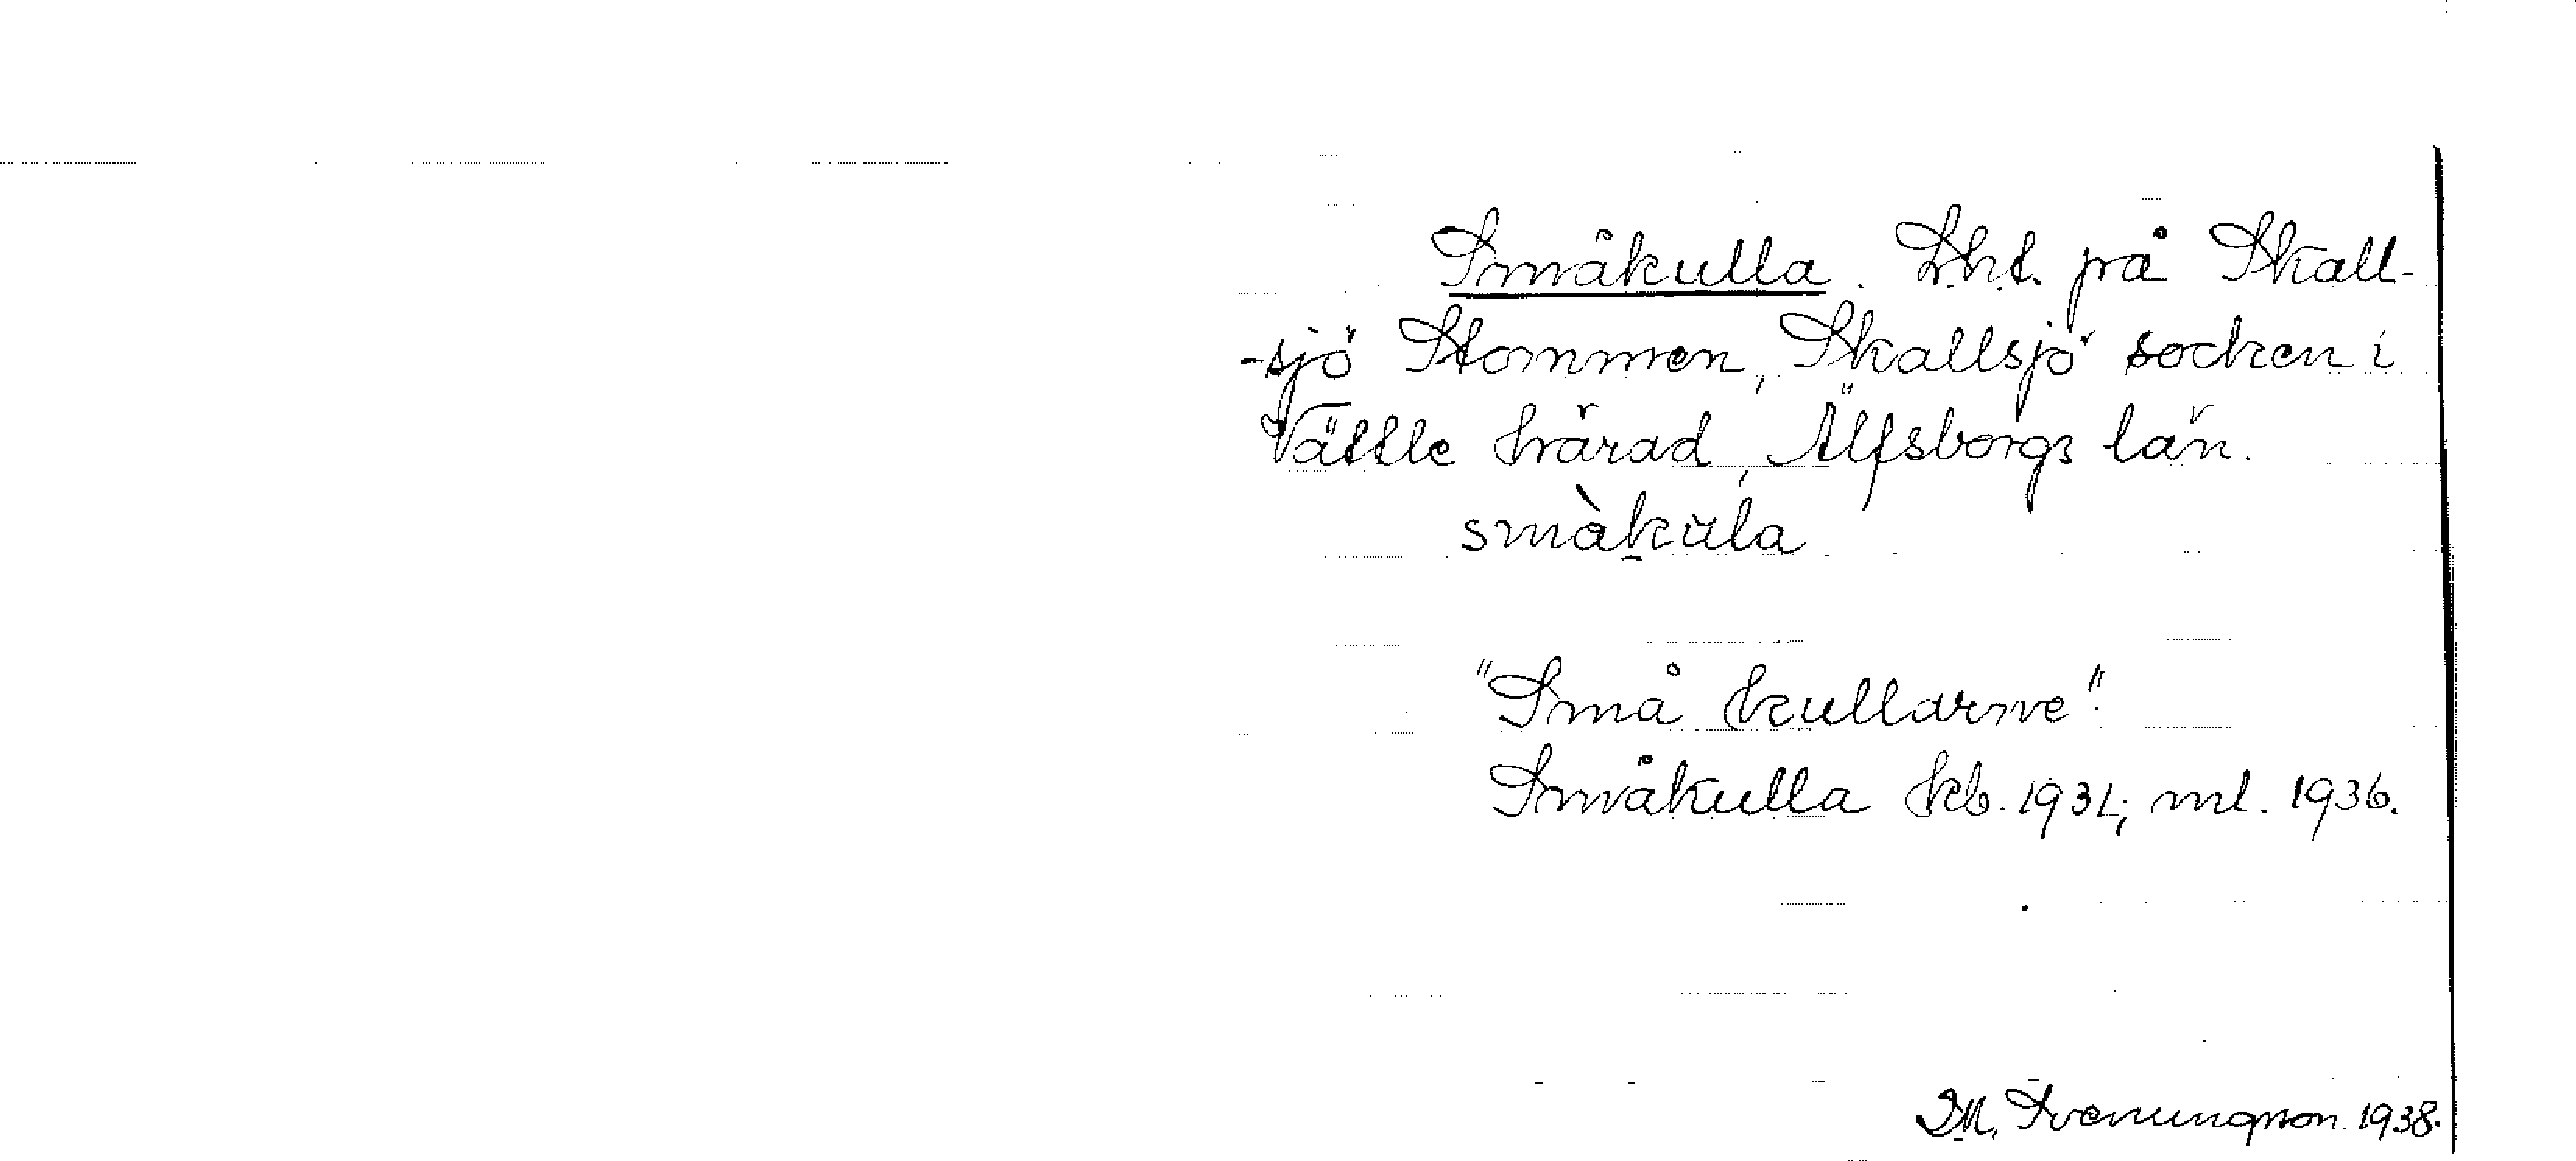 Småkulla. Lht. på Skall-
-sjö Stommen, Skallsjö socken i
Vättle härad, Älfsborgs län.
småkùla
"Små kullarne".
Småkulla kb. 1931; ml. 1936.
D.M. Svenungsson 1938.